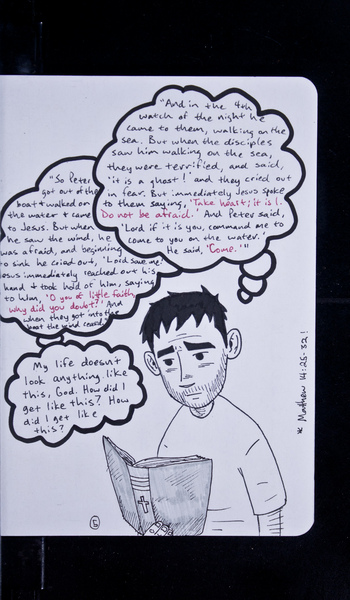 "And in the 4th
watch of the night he
came to them, walking on the
sea. But when the disciples
saw him walking on the sea,
they were terrified, and said,
'it is a ghost!' and they cried out
in fear. But immediately Jesus spoke
to them saying, 'Take heart; it is I.
Do not be afraid.' And Peter said,
'Lord if it is you, command me to
come to you on the water.'
He said, 'Come.'"
"So Peter
got out of the
boat & walked on
the water & came
to Jesus. But when
he saw the wind, he
was afraid, and beginning
to sink he cried out, 'Lord save me!'
Jesus immediately reached out his
hand & took hold of him, saying
to him, 'O you of little faith,
why did you doubt?' And
when they got into the
boat the wind ceased.
My life doesn't
look anything like
this, God. How did I
get like this? How
did I get like
this?
* Matthew 14:25-32!